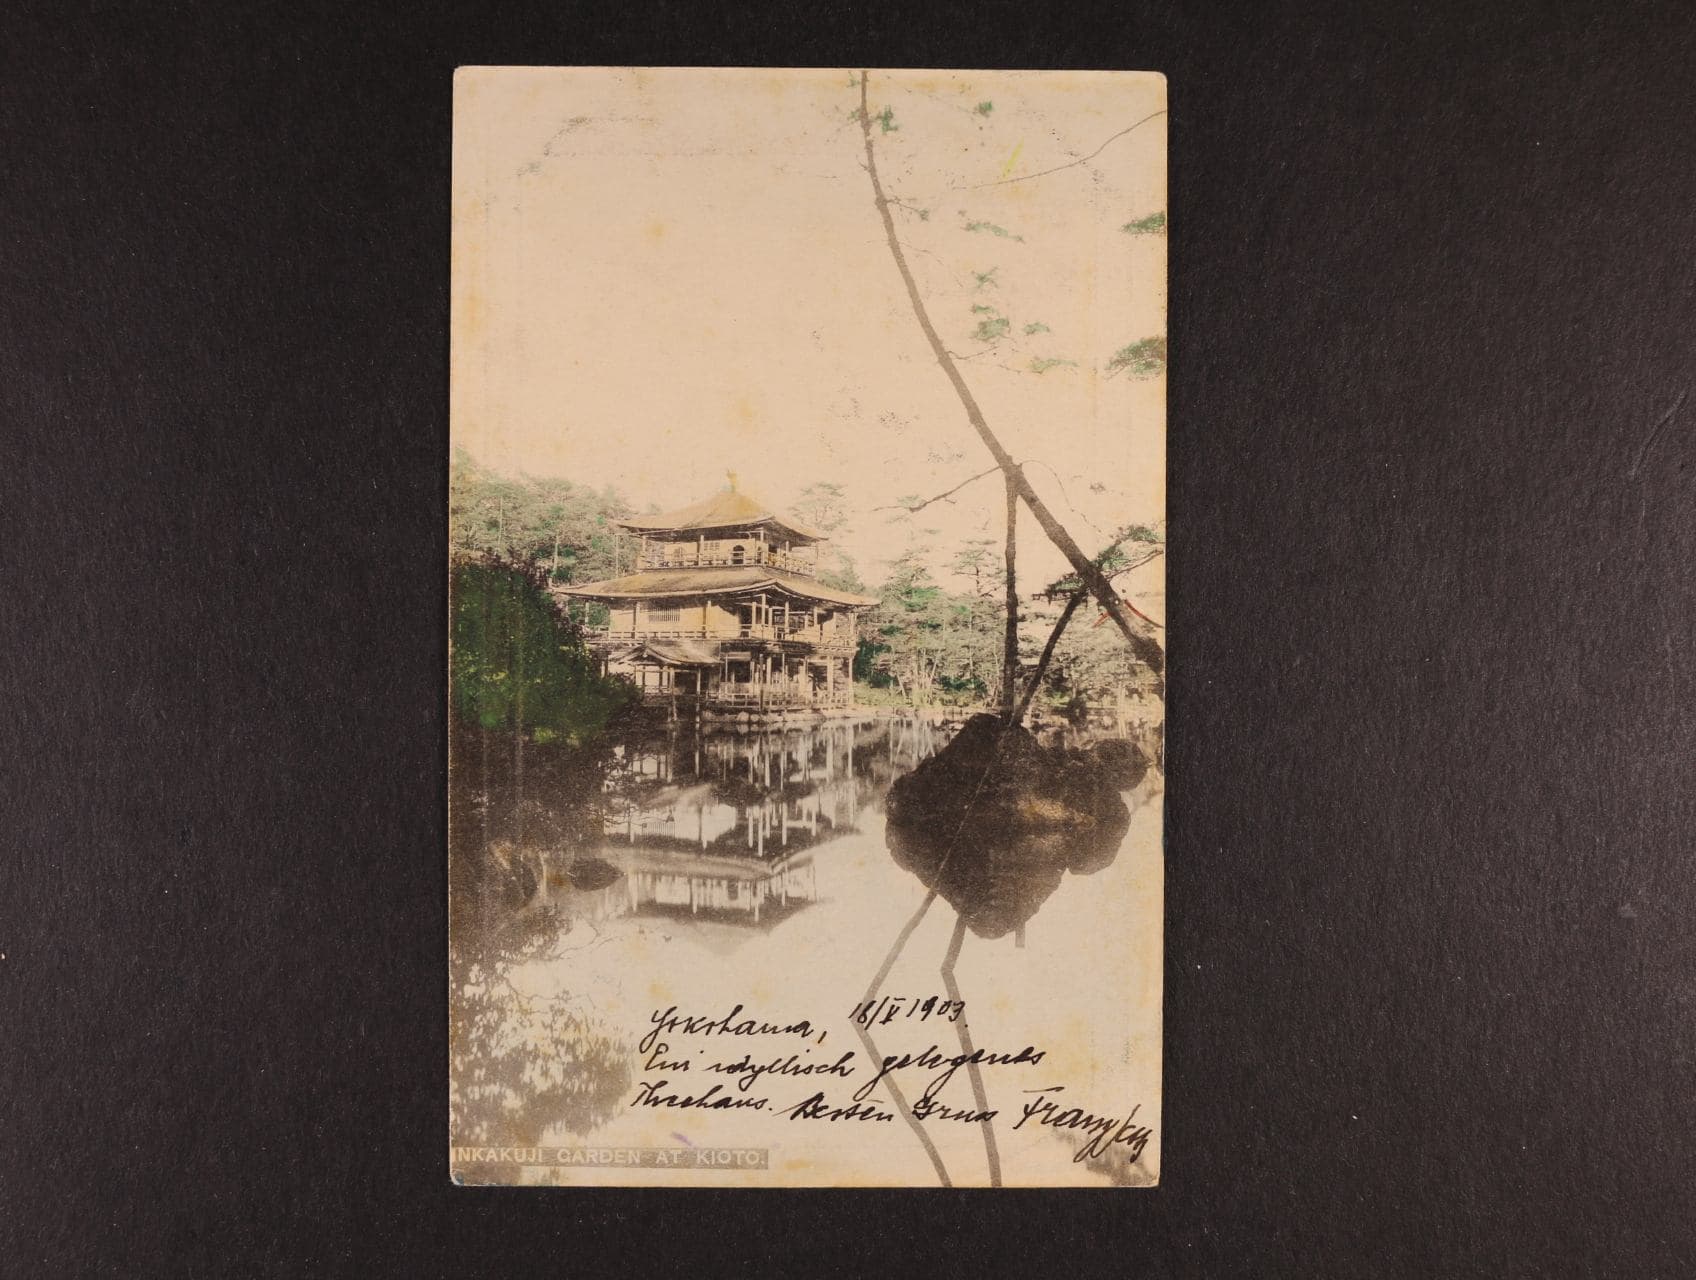 Yokohama, 18/V 1903.
Ein idyllisch gelegenes
Theehaus. Besten Gruss
INKAKUJI GARDEN AT KIOTO.